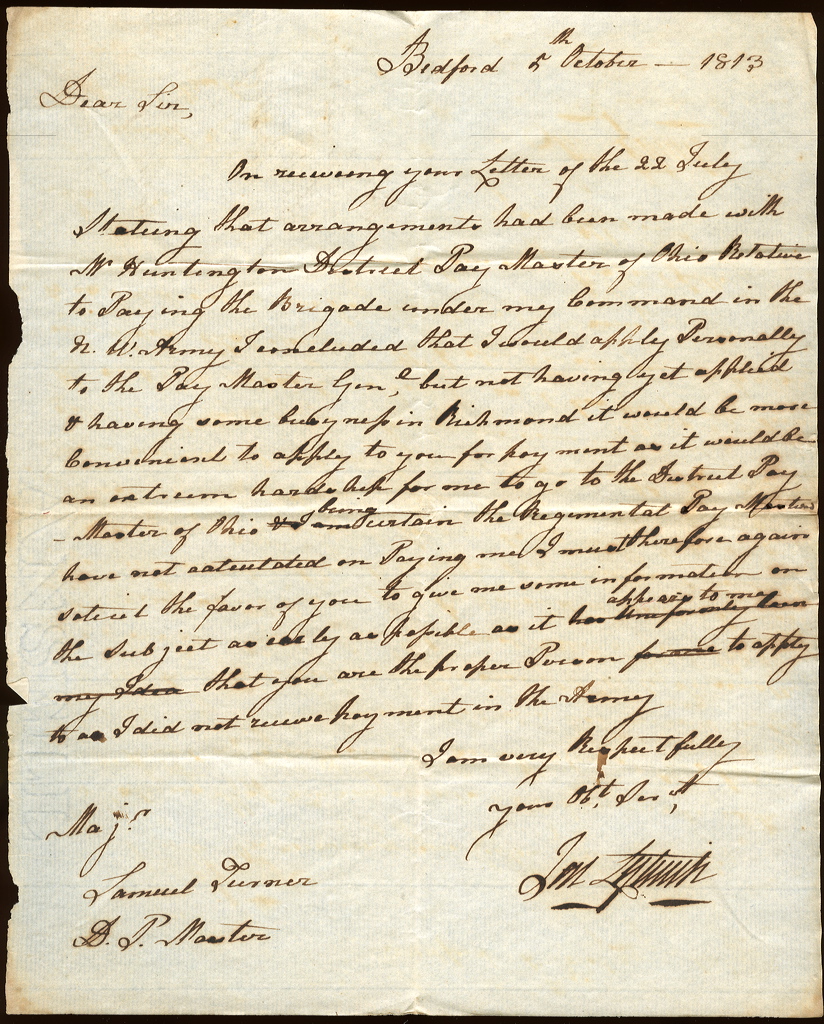 Bedford 5th October — 1813
Dear Sir,
On receiveing your Letter of the 22 July
Stateing that arrangements had been made with
Mr Huntington District Pay Master of Ohio Relative
to Paying the Brigade under my Command in the
N. W. Army I concluded that I would apply Personally
to the Pay Master Genl, but not having yet applied
& having some busyness in Richmond it would be more
Convenient to apply to you for payment as it would be
an extreem hardship for me to go to the District Pay
- Master of Ohio & I am being certain the Regimental Pay Masters
have not calculated on Paying me I must therefore again
solicit the favor of you to give me some information on
the subject as early as possible as it has uniformly been appears to me
my Idea that you are the proper Person for me to apply
to as I did not receive payment in the Army
I am very Respectfully
your Obt, Servt,
Joel Leftwich
Majr
Samuel Turner
D. P. Master